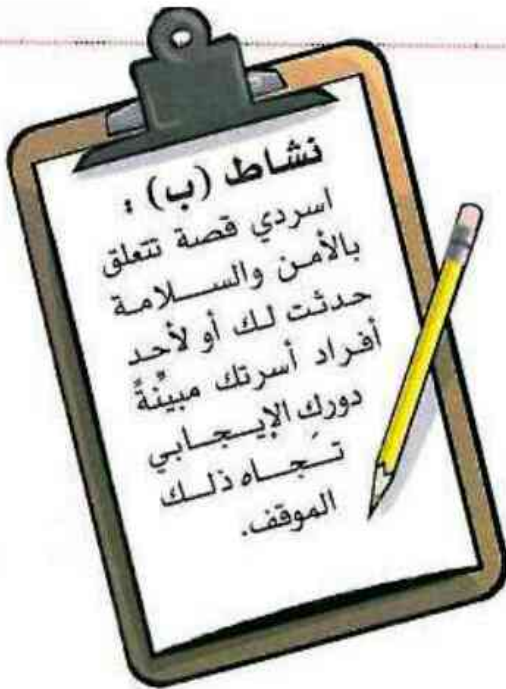 نشاط (ب) :
اسردي قصة تتعلق
بالأمن والســلامة
حدثت لـك أو لأحـد
أفـراد أسرتك مبيِّنةً
دوركِ الإيـجـابي
تـجـاه ذلـك
الموقف.